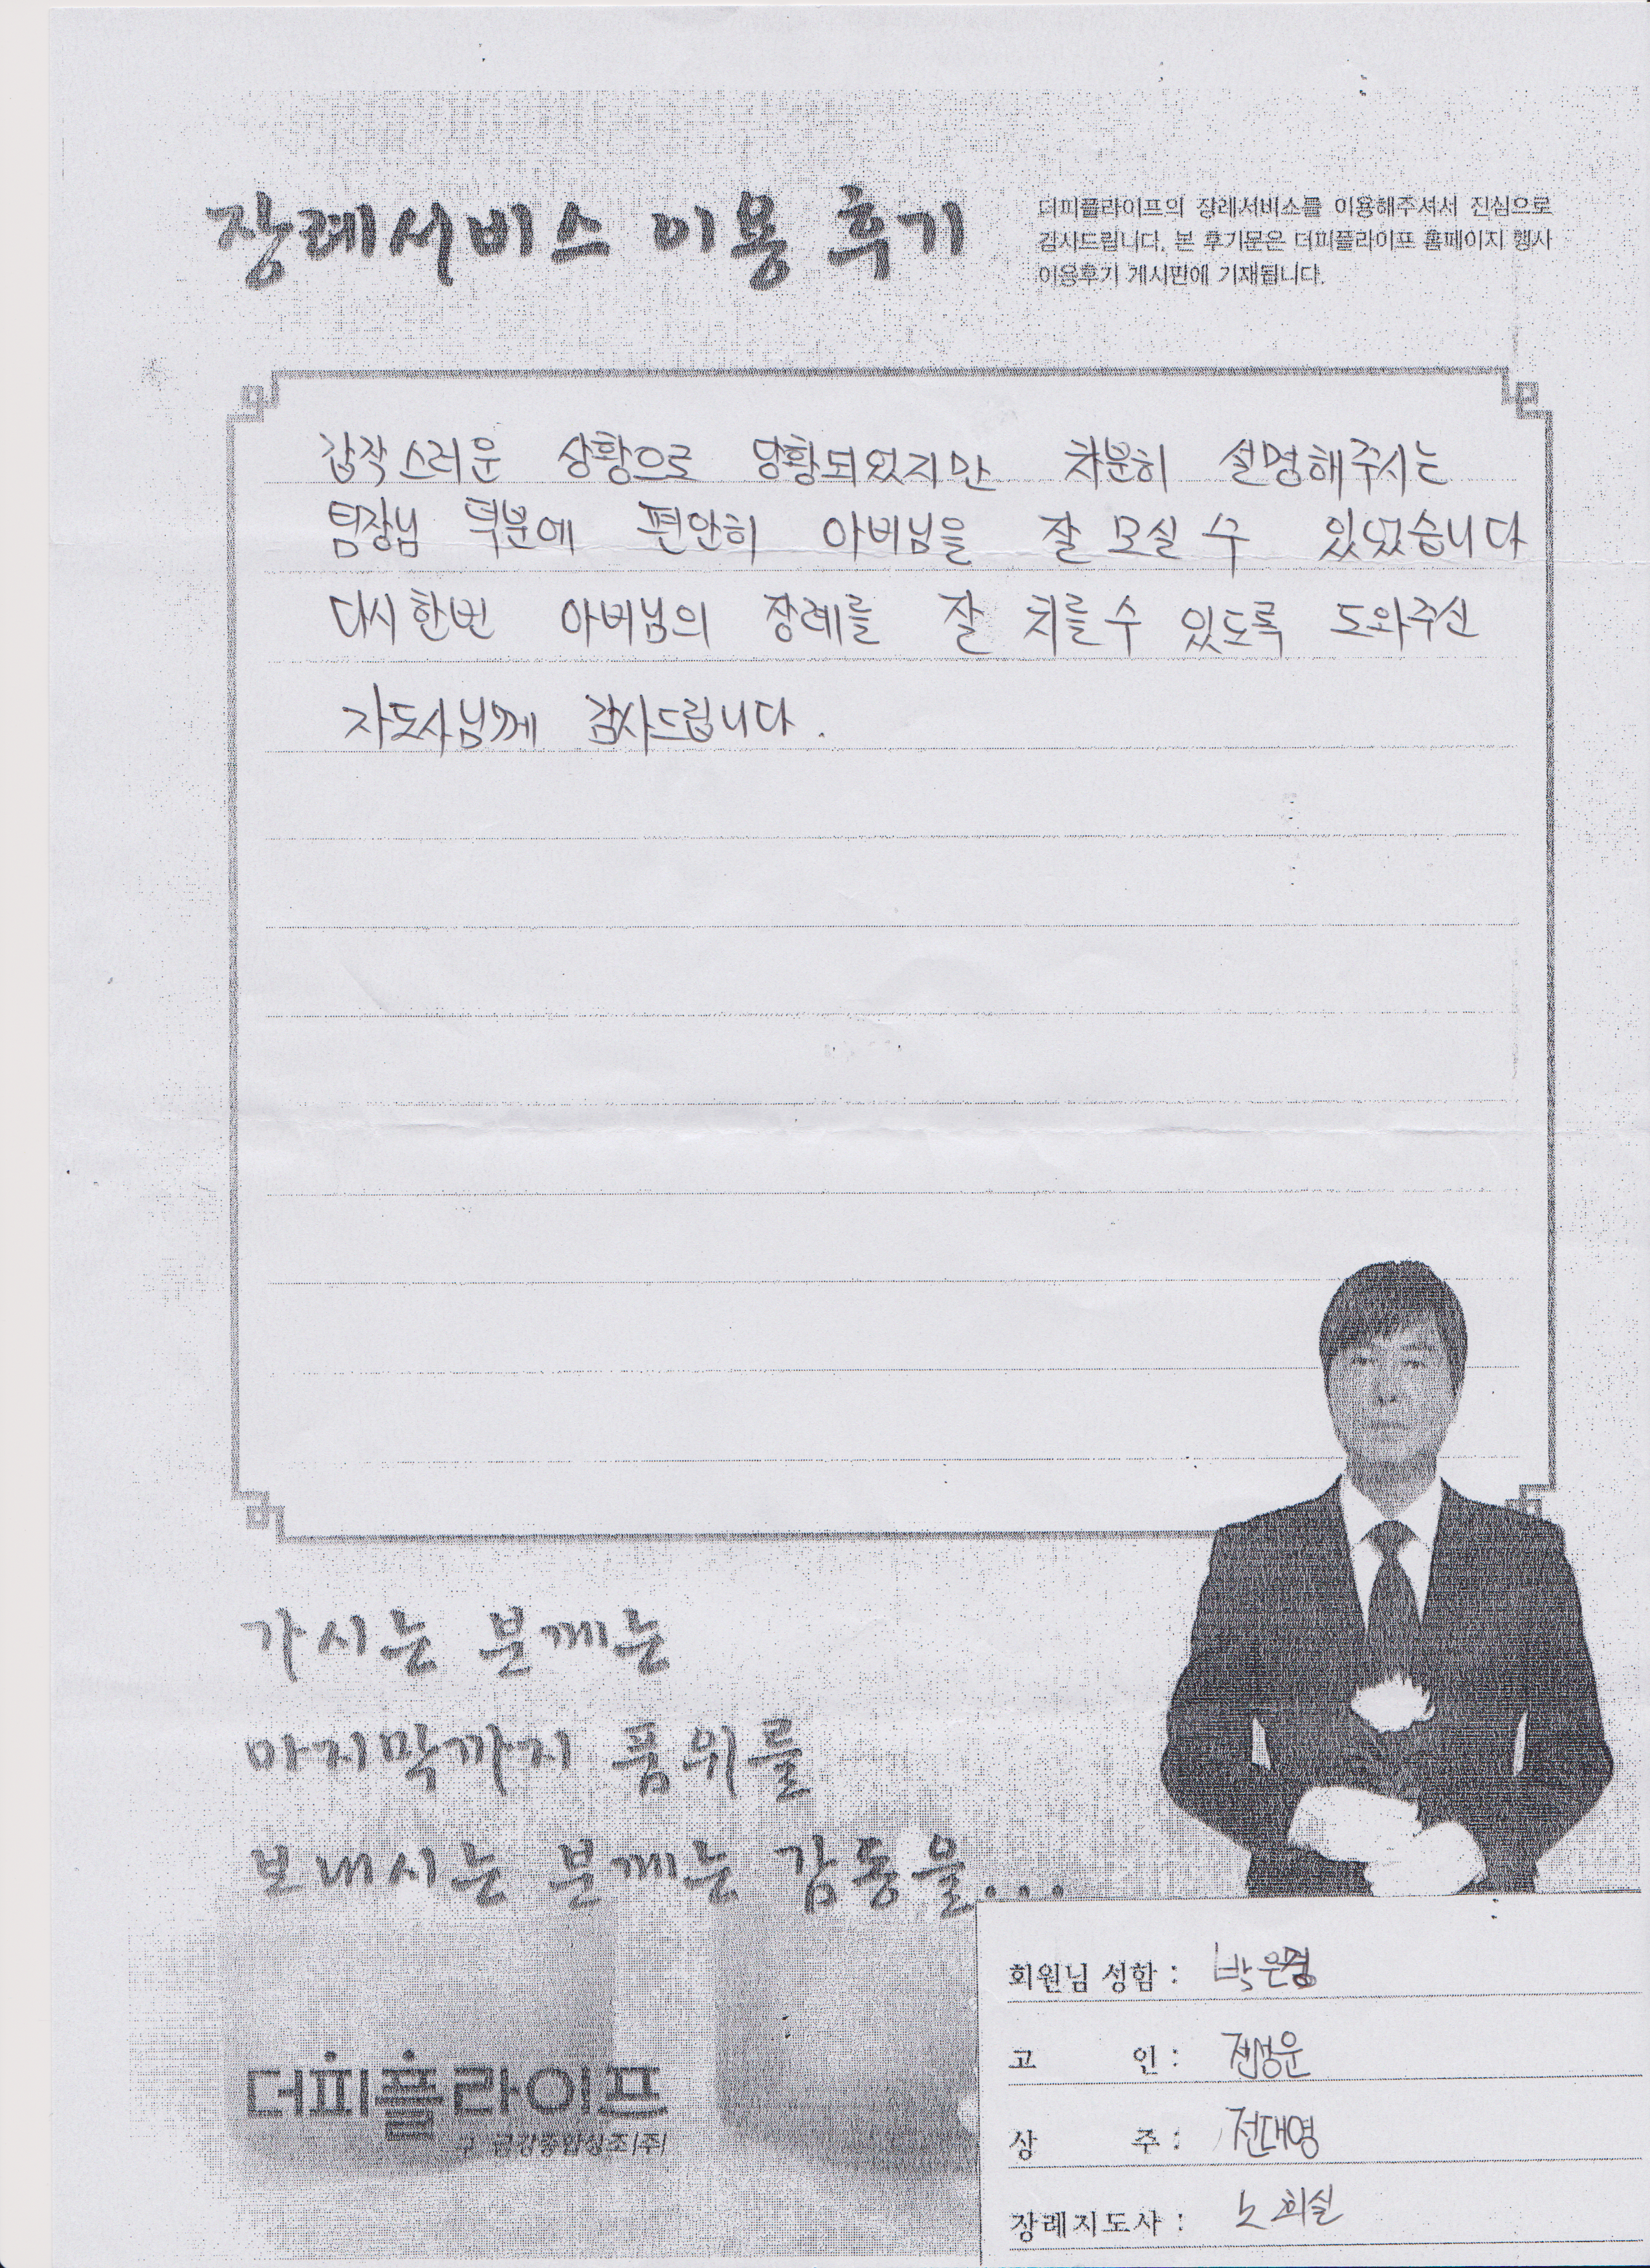 장례서비스 이용 후기
더피플라이프의 장례서비스를 이용해주셔서 진심으로
감사드립니다. 본 후기문은 더피플라이프 홈페이지 행사
이용후기 게시판에 기재됩니다.
갑작스러운 상황으로 당황되었지만 차분히 설명해주시는
팀장님 덕분에 편안히 아버님을 잘 모실 수 있었습니다
다시한번 아버님의 장례를 잘 치를수 있도록 도와주신
지도사님께 감사드립니다.
가시는 분께는
마지막까지 품위를
보내시는 분께는 감동을...
더피플라이프
구 금강종합상조(주)
회원님 성함 : 박은경
고 인 : 전성운
상 주 : 전대영
장례지도사 : 노희실